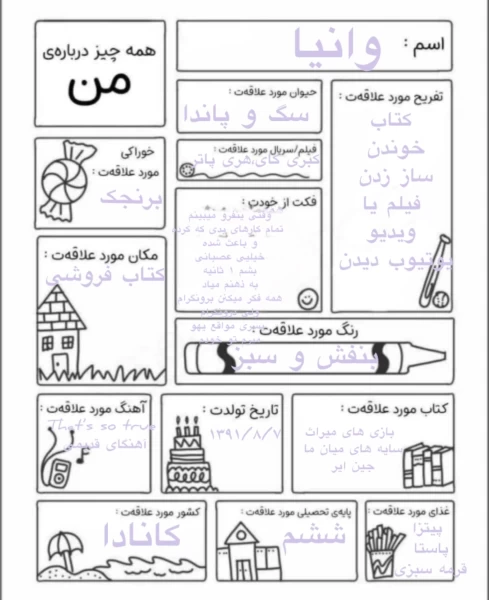 همه چیز درباره‌ی
من
اسم :
وانیا
حیوان مورد علاقه‌ت :
سگ و پاندا
تفریح مورد علاقه‌ت :
کتاب
خوندن
ساز زدن
فیلم یا
ویدیو
یوتیوب دیدن
خوراکی
مورد علاقه‌ت :
برنجک
فیلم/سریال مورد علاقه‌ت :
کبری کای،هری پاتر
فکت از خودت :
وقتی ینفرو میبینم
تمام کارهای بدی که کرده
و باعث شده
خیلی عصبانی
بشم ۱ ثانیه
به ذهنم میاد
همه فکر میکنن برونگرام
ولی درونگرام
مکان مورد علاقه‌ت :
کتاب فروشی
رنگ مورد علاقه‌ت :
بنفش و سبز
آهنگ مورد علاقه‌ت :
That's so true
آهنگای قدیمی
تاریخ تولدت :
۱۳۹۱/۸/۷
کتاب مورد علاقه‌ت :
بازی های میراث
سایه های میان ما
جین ایر
کشور مورد علاقه‌ت :
کانادا
پایه‌ی تحصیلی مورد علاقه‌ت :
ششم
غذای مورد علاقه‌ت :
پیتزا
پاستا
قرمه سبزی